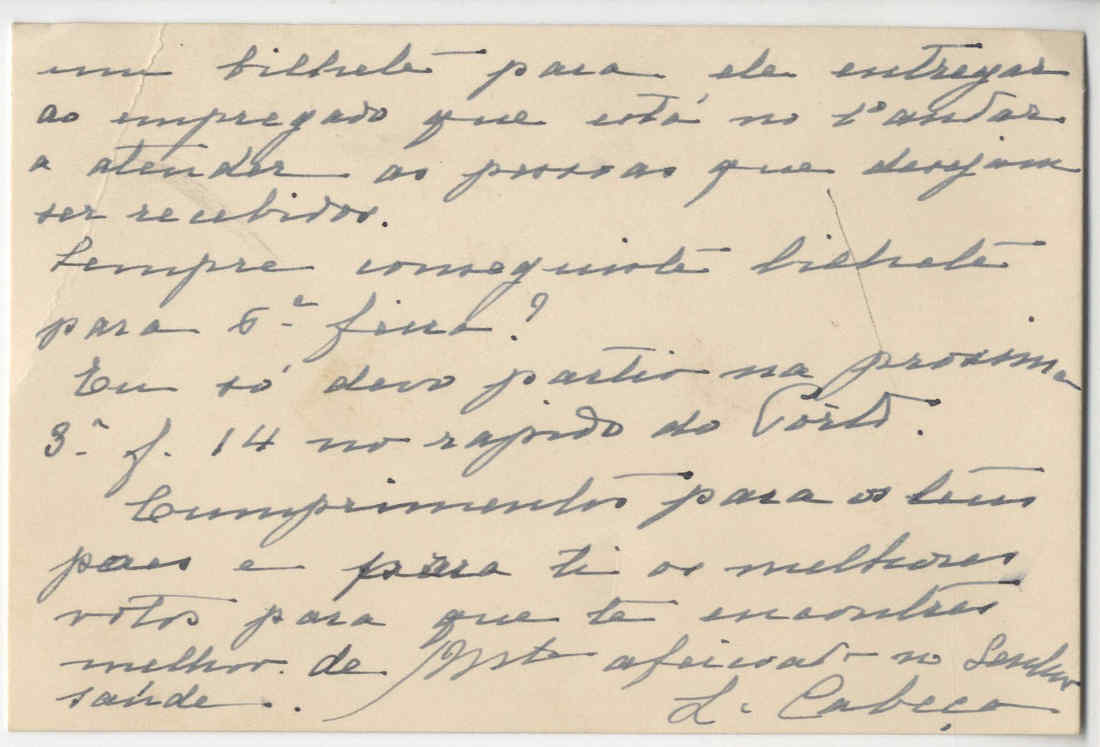 um bilhete para ele entregar
ao empregado que está no 1º andar
a atender as pessoas que desejam
ser recebidos.
Sempre conseguiste bilhete
para 6.ª feira?
Eu só devo partir na proxima
3.ª f. 14 no rapido do Pôrto.
Cumprimentos para os teus
paes e para ti os melhores
votos para que te encontres
melhor de Mto afeiçoado no Senhor
saúde..
L. Cabeço